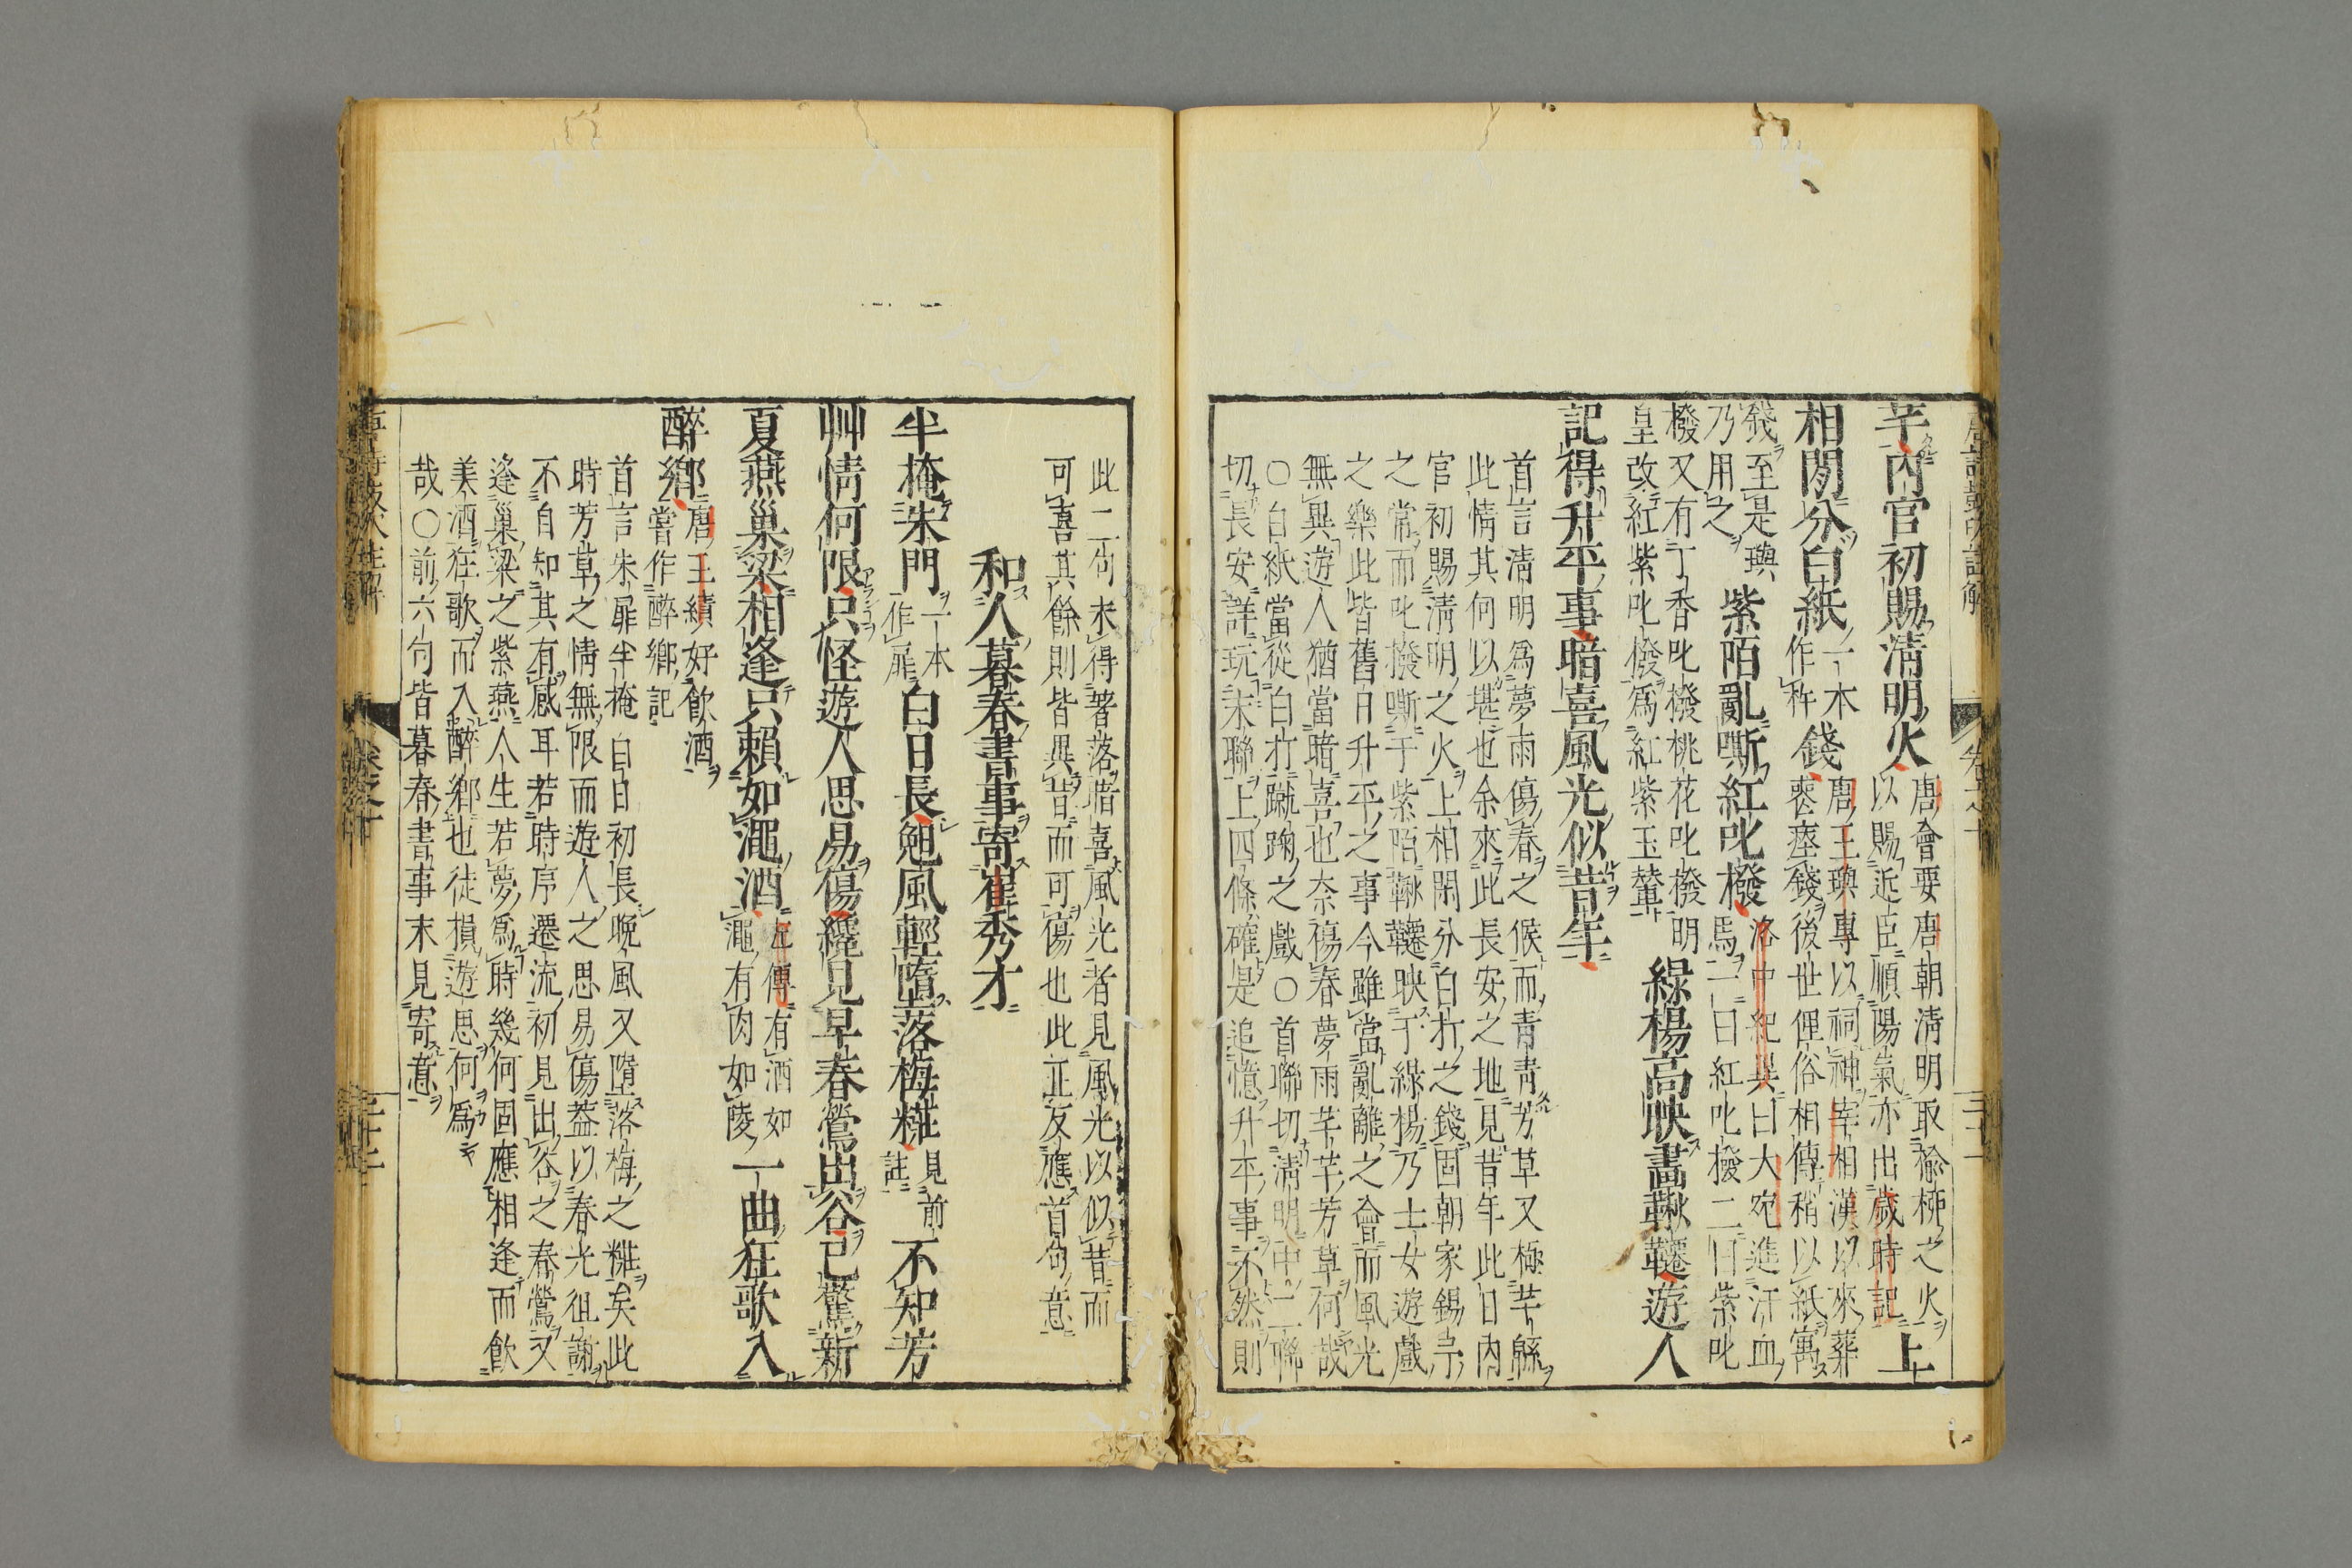 芊内官初賜清明火唐會要唐朝清明取楡柳之火
以賜近臣順陽氣亦出歳時記上
相閒分白紙一本
作秨錢唐王璵專以祠神宰相漢以來葬
喪瘞錢後世俚俗相傳稍以紙寓
錢至是璵
乃用之紫陌亂嘶紅叱撥洛中紀異曰大宛進汗血
馬一曰紅叱撥二曰紫叱
撥又有丁香叱撥桃花叱撥明
皇改紅紫叱撥爲紅紫玉輦綠楊高映畫鞦韆遊人
記得升平事暗喜風光似昔年
首言淸明爲夢雨傷春之候而青青芳草又極芊緜
此情其何以堪也余來此長安之地見昔年此日内
官初賜淸明之火上相閒分白打之錢固朝家錫予
之常而叱撥嘶于紫陌鞦韆映于綠楊乃士女遊戲
之樂此皆舊日升平之事今雖當亂離之會而風光
無異遊人猶當暗喜也奈傷春夢雨芊芊芳草何哉
〇白紙當從白打蹴踘之戲〇首聯切淸明中二聯
切長安詳玩末聯上四條確是追憶升平事不然則
此二句未得著落暗喜風光者見風光以似昔而
可喜其餘則皆異昔而可傷也此正反應首句意
和人暮春書事寄崔秀才
半掩朱門一本
作扉白日長晩風輕墮落梅糚見前
註不知芳
艸情何限只怪遊人思易傷纔見早春鶯出谷已驚新
夏燕巢梁相逢只賴如澠酒左傳有酒如
澠有肉如陵一曲狂歌入
醉鄕唐王績好飮酒
嘗作醉鄕記
首言朱扉半掩白日初長晩風又墮落梅之糚矣此
時芳草之情無限而遊人之思易傷葢以春光徂謝
不自知其有感耳若時序遷流初見出谷之春鶯又
逢巢梁之紫燕人生若夢爲時幾何固應相逢而飮
美酒狂歌而入醉鄕也徒損遊思何爲
哉〇前六句皆暮春書事末見寄意